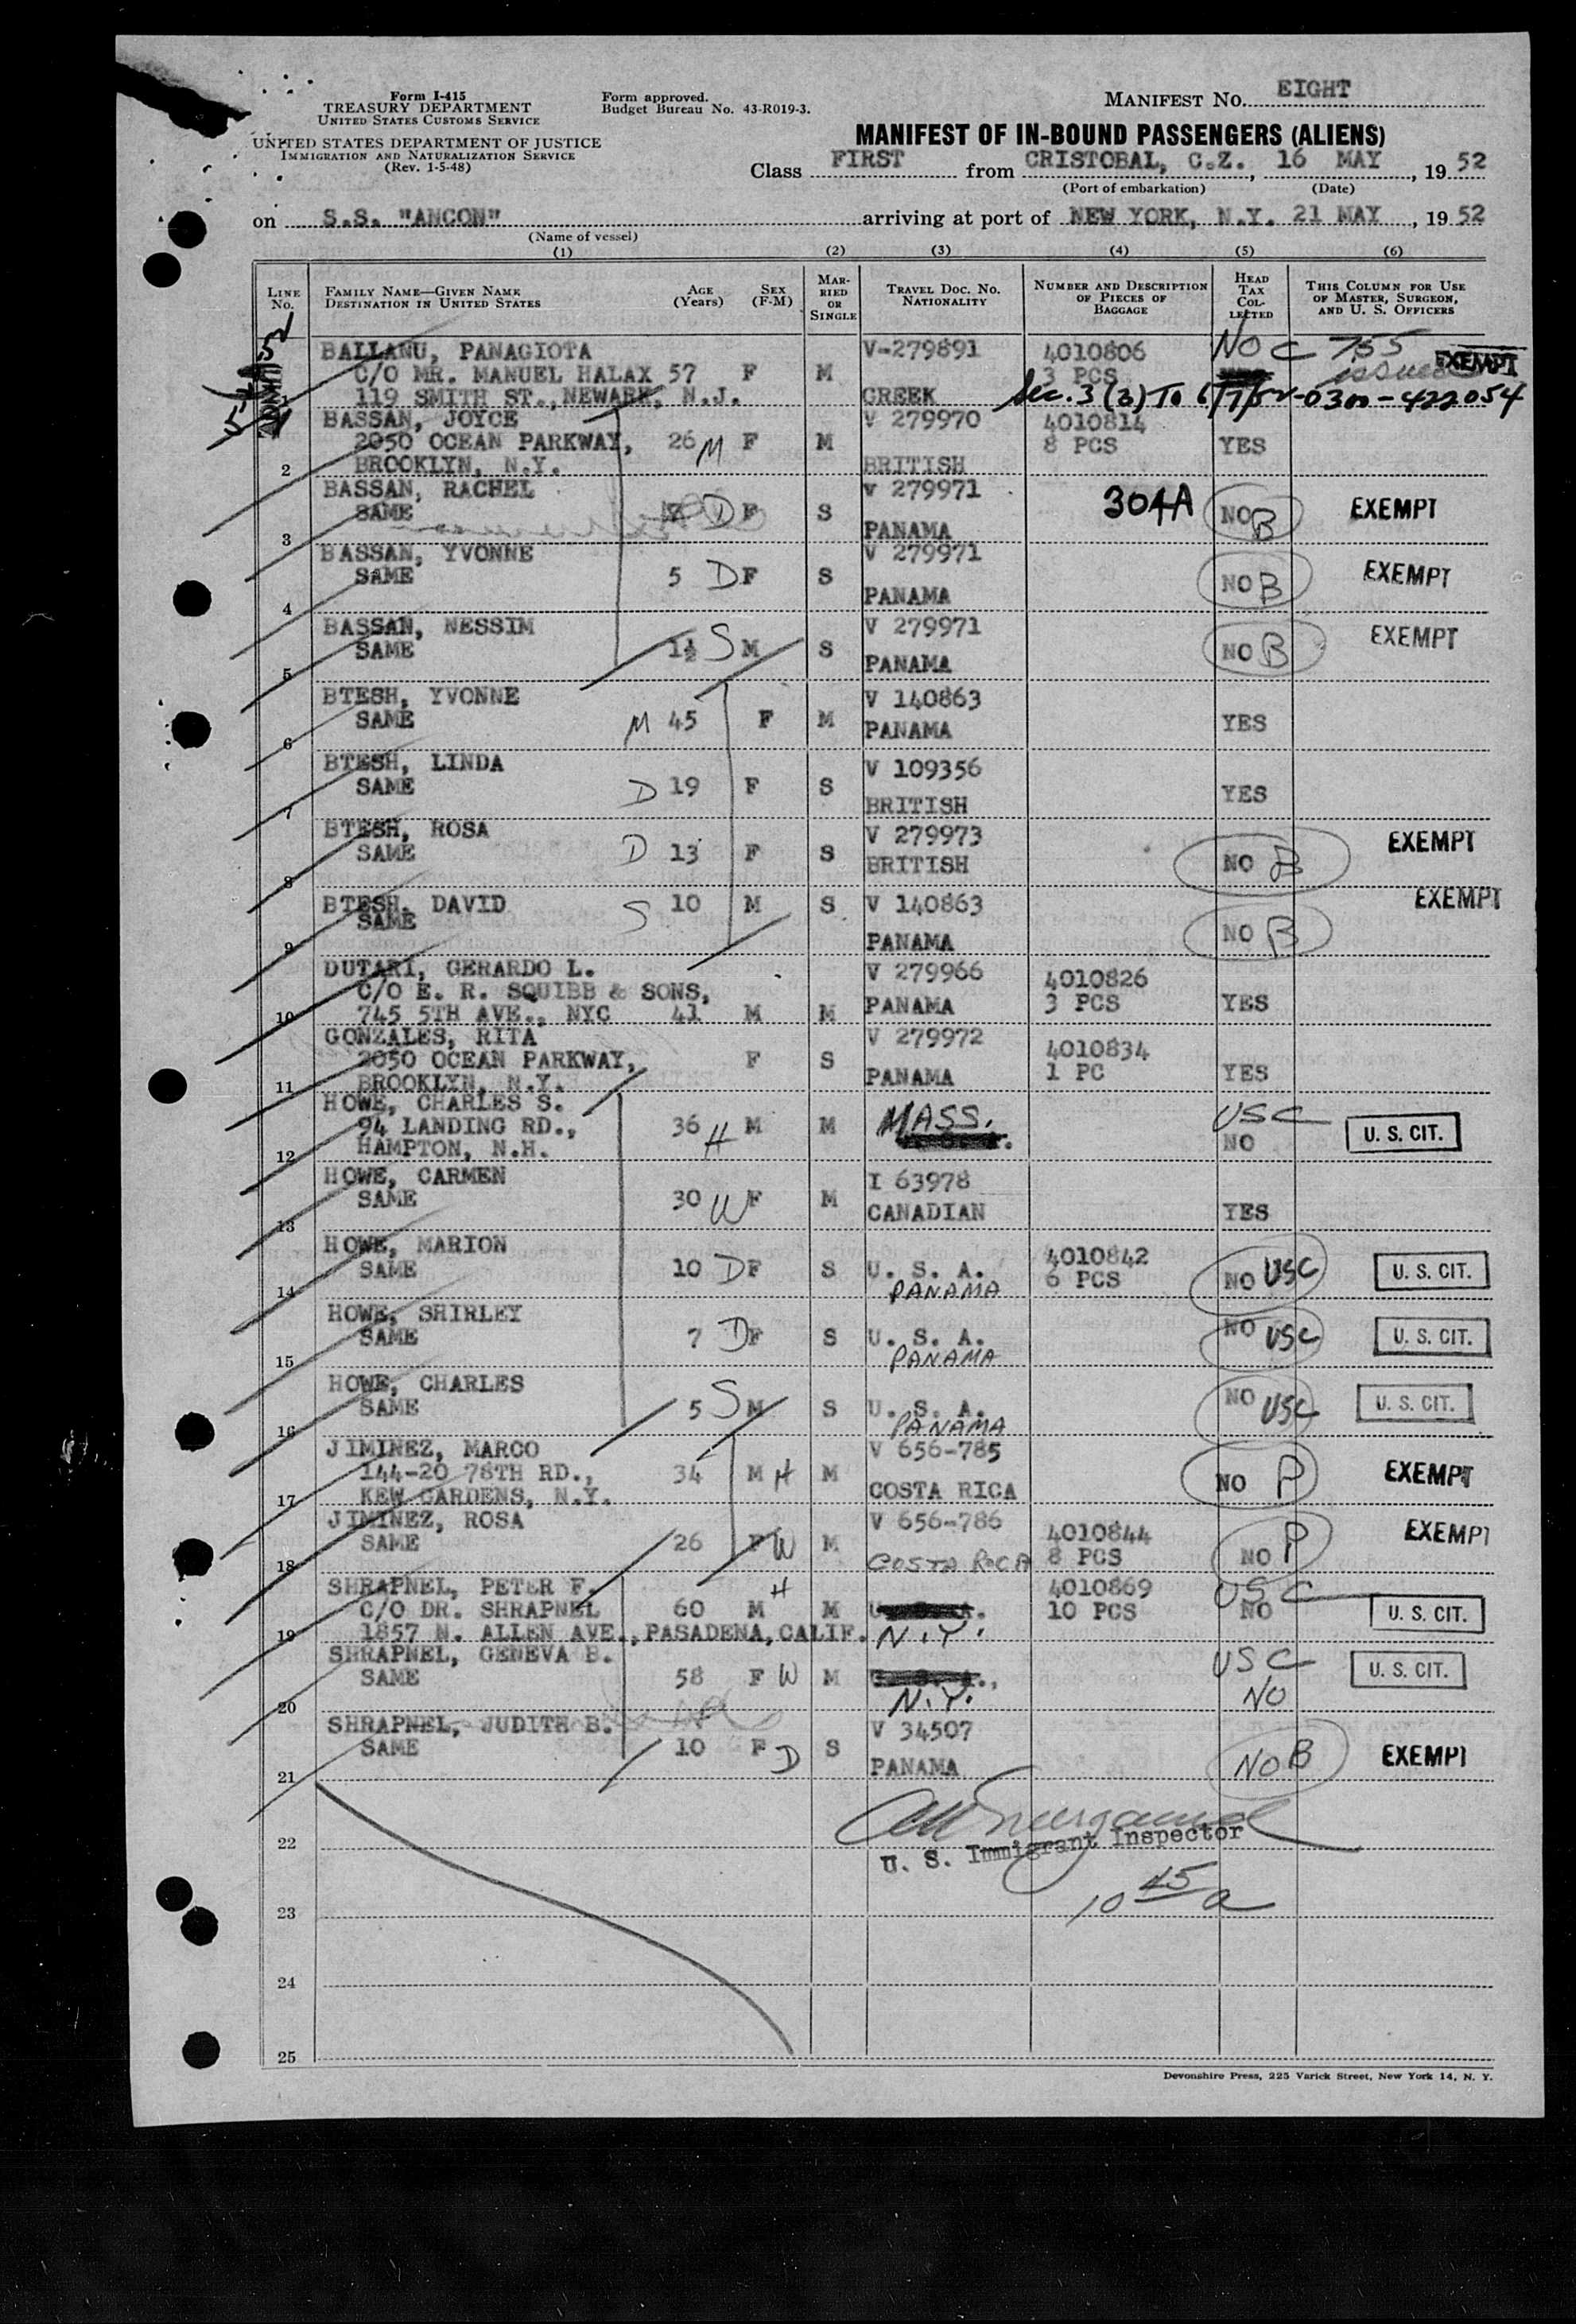 Form I-415
TREASURY DEPARTMENT
UNITED STATES CUSTOMS SERVICE
UNITED STATES DEPARTMENT OF JUSTICE
IMMIGRATION AND NATURALIZATION SERVICE
(Rev. 1-5-48)
Form approved.
Budget Bureau No. 43-R019-3.
MANIFEST NO. EIGHT
MANIFEST OF IN-BOUND PASSENGERS (ALIENS)
Class FIRST from CRISTOBAL, C.Z. 16 MAY, 19 52
(Port of embarkation) (Date)
on S.S. "ANCON" arriving at port of NEW YORK, N.Y. 21 MAY, 19 52
(Name of vessel)
(1) (2) (3) (4) (5) (6)
LINE NO. FAMILY NAME—GIVEN NAME DESTINATION IN UNITED STATES AGE (Years) SEX (F-M) MARRIED OR SINGLE TRAVEL DOC. NO. NATIONALITY NUMBER AND DESCRIPTION OF PIECES OF BAGGAGE HEAD TAX COLLECTED THIS COLUMN FOR USE OF MASTER, SURGEON, AND U. S. OFFICERS
BALLANU, PANAGIOTA V-279891 4010806 NO C 755
C/O MR. MANUEL HALAX 57 F M 3 PCS issued EXEMPT
1 119 SMITH ST., NEWARK, N.J. GREEK Sec. 3 (2) To 6/7/52-0300-422054
BASSAN, JOYCE V 279970 4010814
2050 OCEAN PARKWAY, 26 M F M 8 PCS YES
2 BROOKLYN, N.Y. BRITISH
BASSAN, RACHEL V 279971 304A
SAME D F S NO B EXEMPT
3 PANAMA
BASSAN, YVONNE V 279971
SAME 5 D F S NO B EXEMPT
4 PANAMA
BASSAN, NESSIM V 279971
SAME 1½ S M S NO B EXEMPT
5 PANAMA
BTESH, YVONNE V 140863
SAME M 45 F M PANAMA YES
6
BTESH, LINDA V 109356
SAME D 19 F S YES
7 BRITISH
BTESH, ROSA V 279973 EXEMPT
SAME D 13 F S BRITISH NO B
8
BTESH, DAVID S 10 M S V 140863 EXEMPT
SAME NO B
9 PANAMA
DUTARI, GERARDO L. V 279966 4010826
C/O E. R. SQUIBB & SONS, PANAMA 3 PCS YES
10 745 5TH AVE., NYC 41 M M
GONZALES, RITA V 279972 4010834
2050 OCEAN PARKWAY, F S 1 PC YES
11 BROOKLYN, N.Y. PANAMA
HOWE, CHARLES S. MASS. USC
94 LANDING RD., 36 H M M NO U. S. CIT.
12 HAMPTON, N.H.
HOWE, CARMEN I 63978
SAME 30 W F M CANADIAN YES
13
HOWE, MARION 4010842
SAME 10 D F S U. S. A. 6 PCS NO USC U. S. CIT.
14 PANAMA
HOWE, SHIRLEY
SAME 7 D F S U. S. A. NO USC U. S. CIT.
15 PANAMA
HOWE, CHARLES
SAME 5 S M S U. S. A. NO USC U. S. CIT.
16 PANAMA
JIMINEZ, MARCO V 656-785
144-20 78TH RD., 34 M H M NO P EXEMPT
17 KEW GARDENS, N.Y. COSTA RICA
JIMINEZ, ROSA V 656-786 4010844
SAME 26 F W M COSTA RICA 8 PCS NO P EXEMPT
18
SHRAPNEL, PETER F. H 4010869 USC
C/O DR. SHRAPNEL 60 M M 10 PCS NO U. S. CIT.
19 1857 N. ALLEN AVE., PASADENA, CALIF. N.Y.
SHRAPNEL, GENEVA B. USC
SAME 58 F W M N.Y. NO U. S. CIT.
20
SHRAPNEL, JUDITH B. V 34507
SAME 10 F D S NO B EXEMPT
21 PANAMA
22 U. S. Immigrant Inspector
10 45 a
23
24
25
Devonshire Press, 225 Varick Street, New York 14, N. Y.